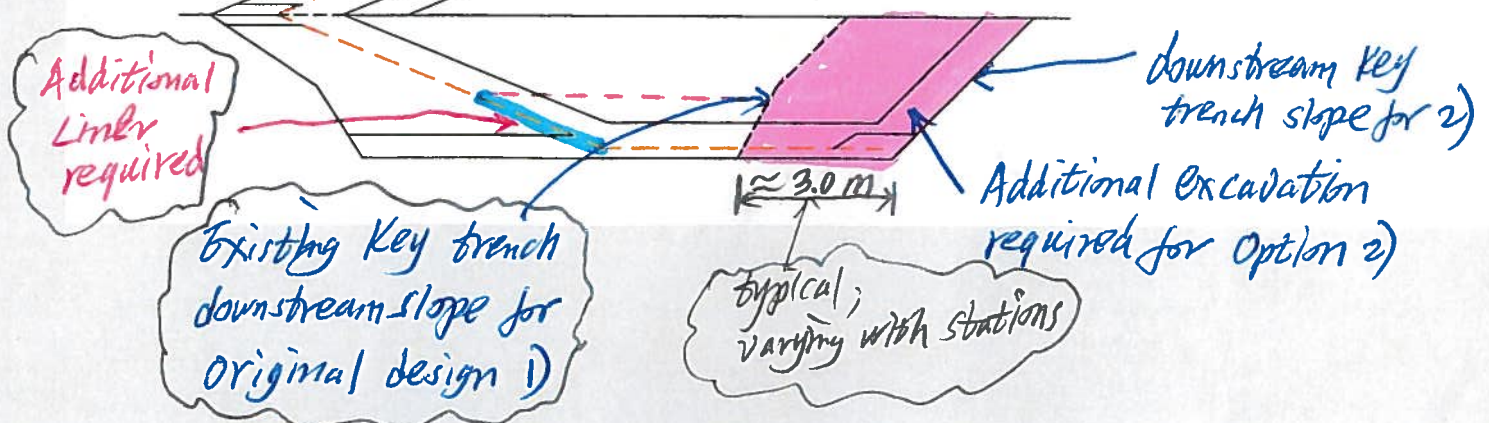 Additional
Liner
required
Existing Key trench
downstream slope for
original design 1)
≈ 3.0 m
typical,
varying with stations
downstream key
trench slope for 2)
Additional excavation
required for Option 2)